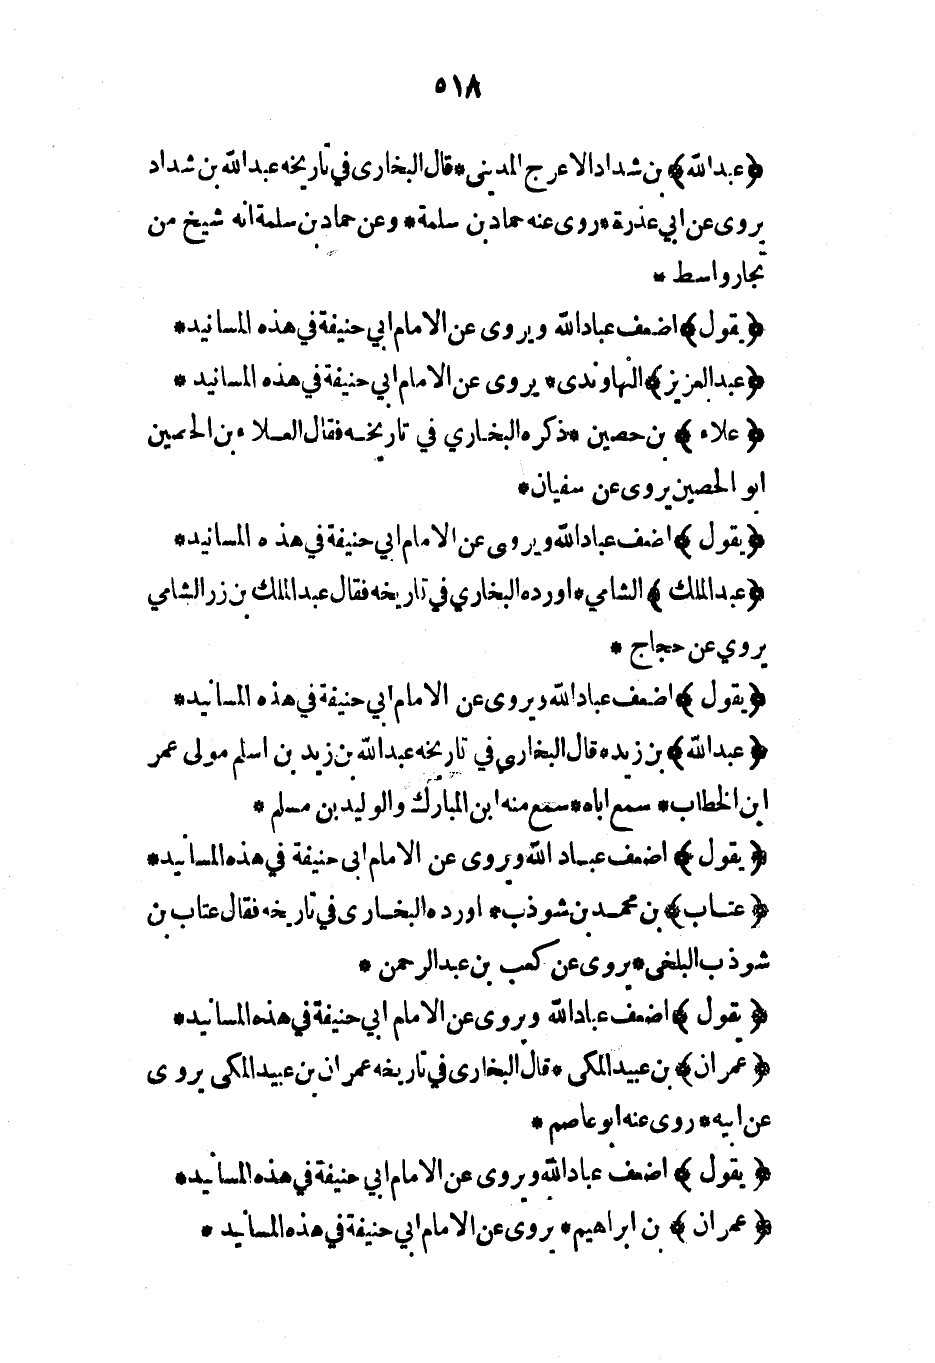 ٥١٨
﴿عبدالله﴾ بن شداد الاعرج المديني * قال البخارى في تاريخه عبدالله بن شداد
يروى عن ابي عذرة * روى عنه حماد بن سلمة * وعن حماد بن سلمة انه شيخ من
تجار واسط *
﴿يقول﴾ اضعف عبادالله ويروى عن الامام ابي حنيفة في هذه المسانيد *
﴿عبدالعزيز﴾ النهاوندى * يروى عن الامام ابي حنيفة في هذه المسانيد *
﴿علاء﴾ بن حصين * ذكره البخاري في تاريخه فقال العلاء بن الحصين
ابو الحصين يروى عن سفيان *
﴿يقول﴾ اضعف عبادالله ويروى عن الامام ابي حنيفة في هذه المسانيد *
﴿عبدالملك﴾ الشامي * اورده البخاري في تاريخه فقال عبدالملك بن زر الشامي
يروي عن حجاج *
﴿يقول﴾ اضعف عبادالله ويروى عن الامام ابي حنيفة في هذه المسانيد *
﴿عبدالله﴾ بن زيد * قال البخاري في تاريخه عبدالله بن زيد بن اسلم مولى عمر
ابن الخطاب * سمع اباه * سمع منه ابن المبارك والوليد بن مسلم *
﴿يقول﴾ اضعف عباد الله ويروى عن الامام ابي حنيفة في هذه المسانيد *
﴿عتاب﴾ بن محمد بن شوذب * اورده البخارى في تاريخه فقال عتاب بن
شوذب البلخى * يروى عن كعب بن عبدالرحمن *
﴿يقول﴾ اضعف عبادالله ويروى عن الامام ابي حنيفة في هذه المسانيد *
﴿عمران﴾ بن عبيد المكى * قال البخارى في تاريخه عمران بن عبيد المكى يروى
عن ابيه * روى عنه ابو عاصم *
﴿يقول﴾ اضعف عبادالله ويروى عن الامام ابي حنيفة في هذه المسانيد *
﴿عمران﴾ بن ابراهيم * يروى عن الامام ابي حنيفة في هذه المسانيد *